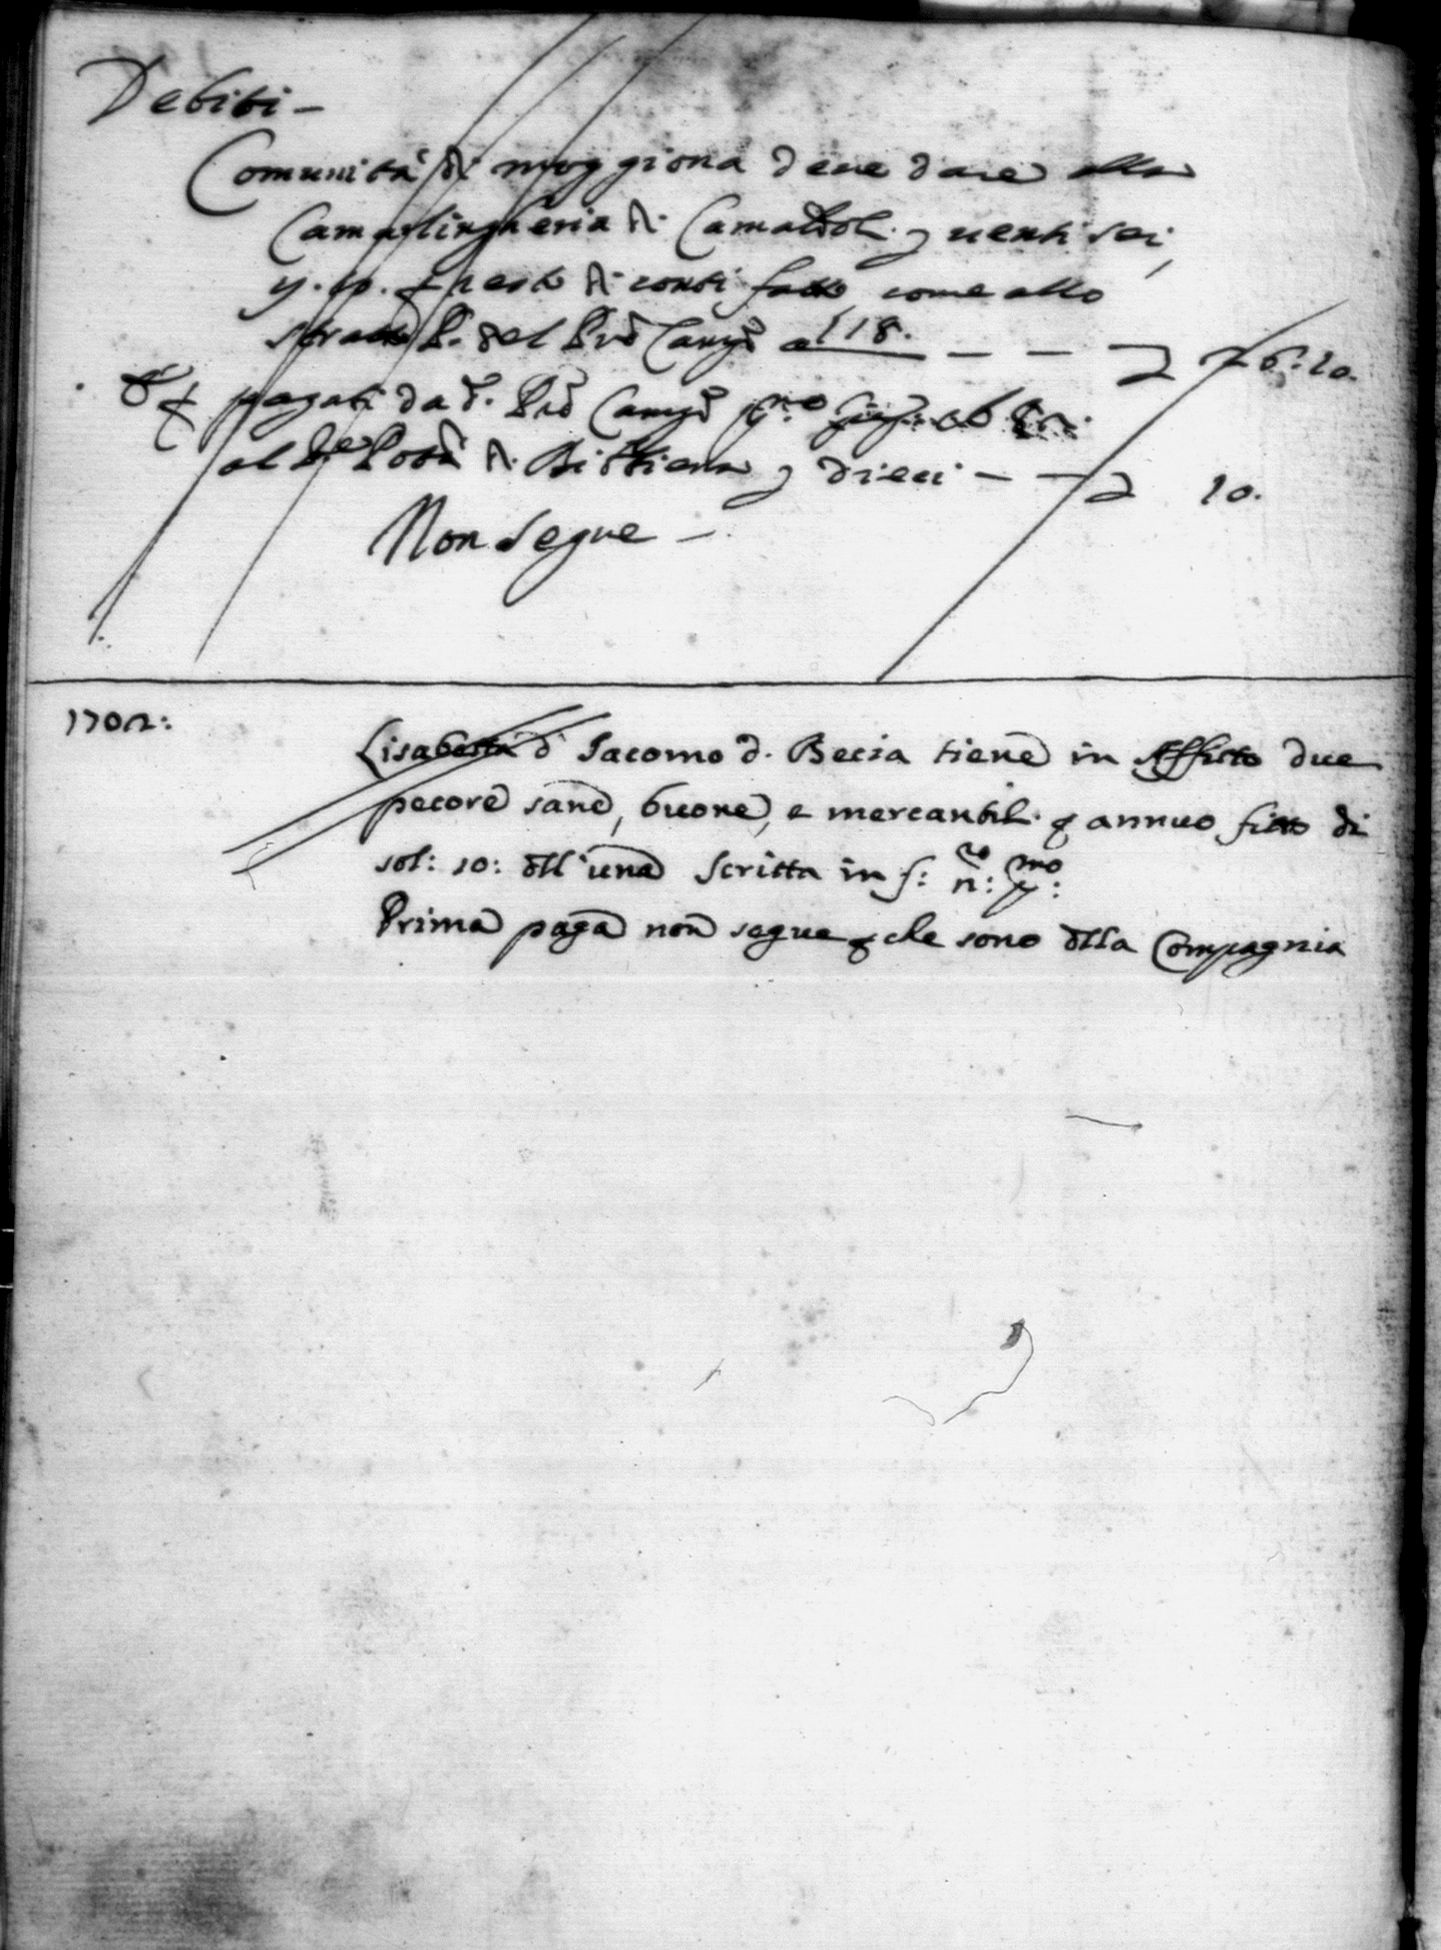 Debiti -
Comunità di moggiona deve dare alla
Camarlingheria di Camaldoli venti sei
resto di conti fatto come allo
stratto P. del Prē a 118. — — 26. 10.
pagati da d. Prē
al Potà di Bibbiena dieci — — 10.
Non segue —
1702:
Lisabetta d Iacomo d. Becia tiene in Affitto due
pecore sane, buone, e mercantil. annuo fitto di
sol: 10: dll'una Scritta in f: n:
Prima paga non segue che sono dlla Compagnia